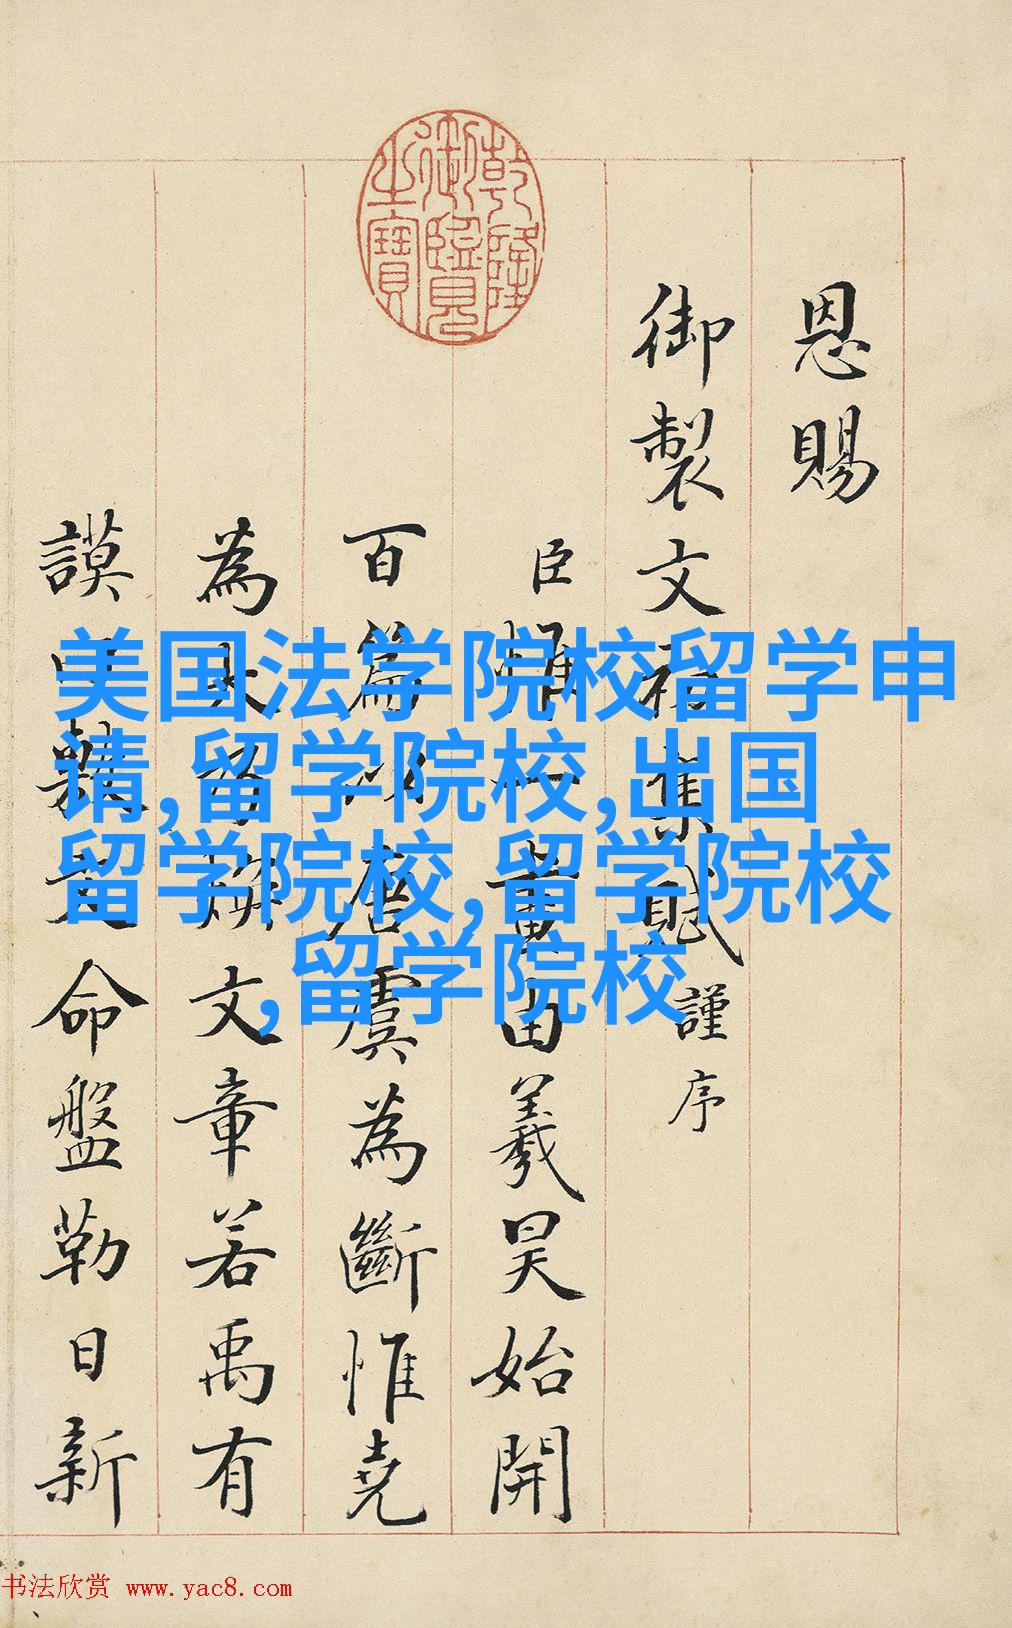 乾隆
御覽
之寶
恩賜
御製文初集賦謹序
臣 一畫由羲昊始開
百篇以唐虞為斷惟堯
為大乃煥文章若禹有
謨 命盤勒日新
美国法学院校留学申
请,留学院校,出国
留学院校,留学院校
,留学院校
书法欣赏 www.yac8.com